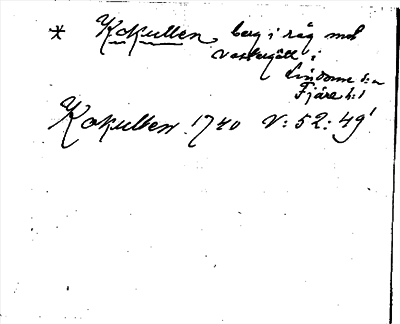 * Kokullen berg i råg mot
Västergötl i
Lindome s:n
Fjäre h:d
Kokullen 1740 V: 52: 49